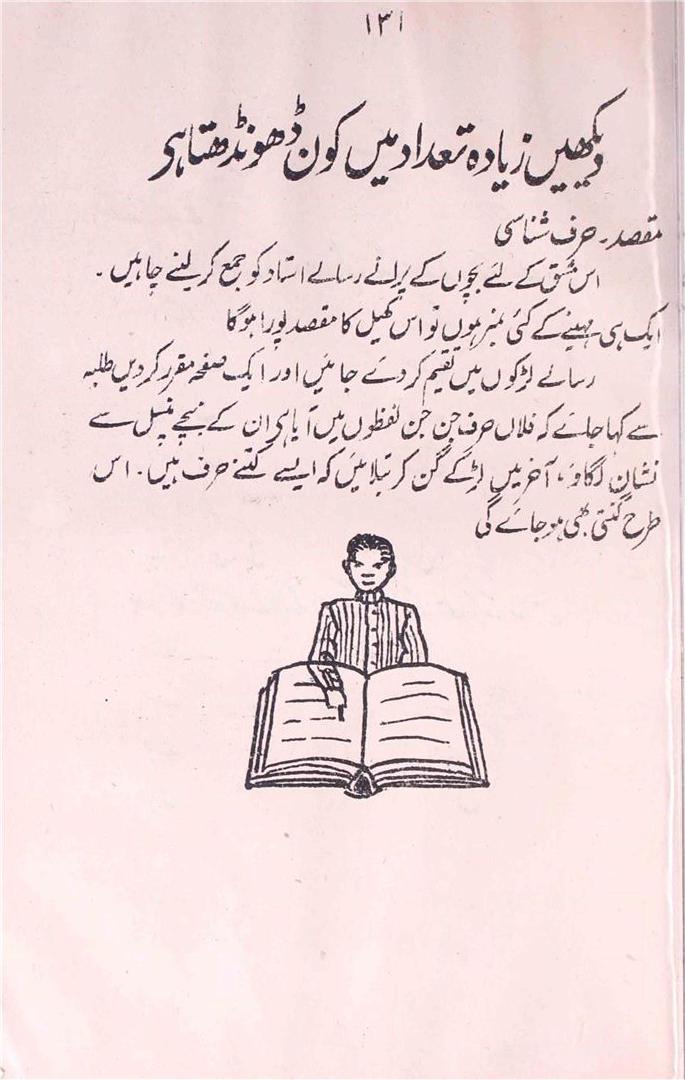 ۱۳۱
دیکھیں زیادہ تعداد میں کون ڈھونڈھتا ہی
مقصد۔ حرف شناسی
اس مشق کے لئے بچوں کے پرانے رسالے استاد کو جمع کر لینے چاہیں۔
ایک ہی مہینے کے کئی نمبر ہوں تو اس کھیل کا مقصد پورا ہوگا
رسالے لڑکوں میں تقسیم کردے جائیں اور ایک صفحہ مقرر کردیں طلبہ
سے کہا جائے کہ فلاں حرف جن جن لفظوں میں آیا ہی ان کے نیچے پنسل سے
نشان لگاؤ، آخر میں لڑکے گن کر بتلائیں کہ ایسے کتنے حرف ہیں۔ اس
طرح گنتی بھی ہو جائے گی